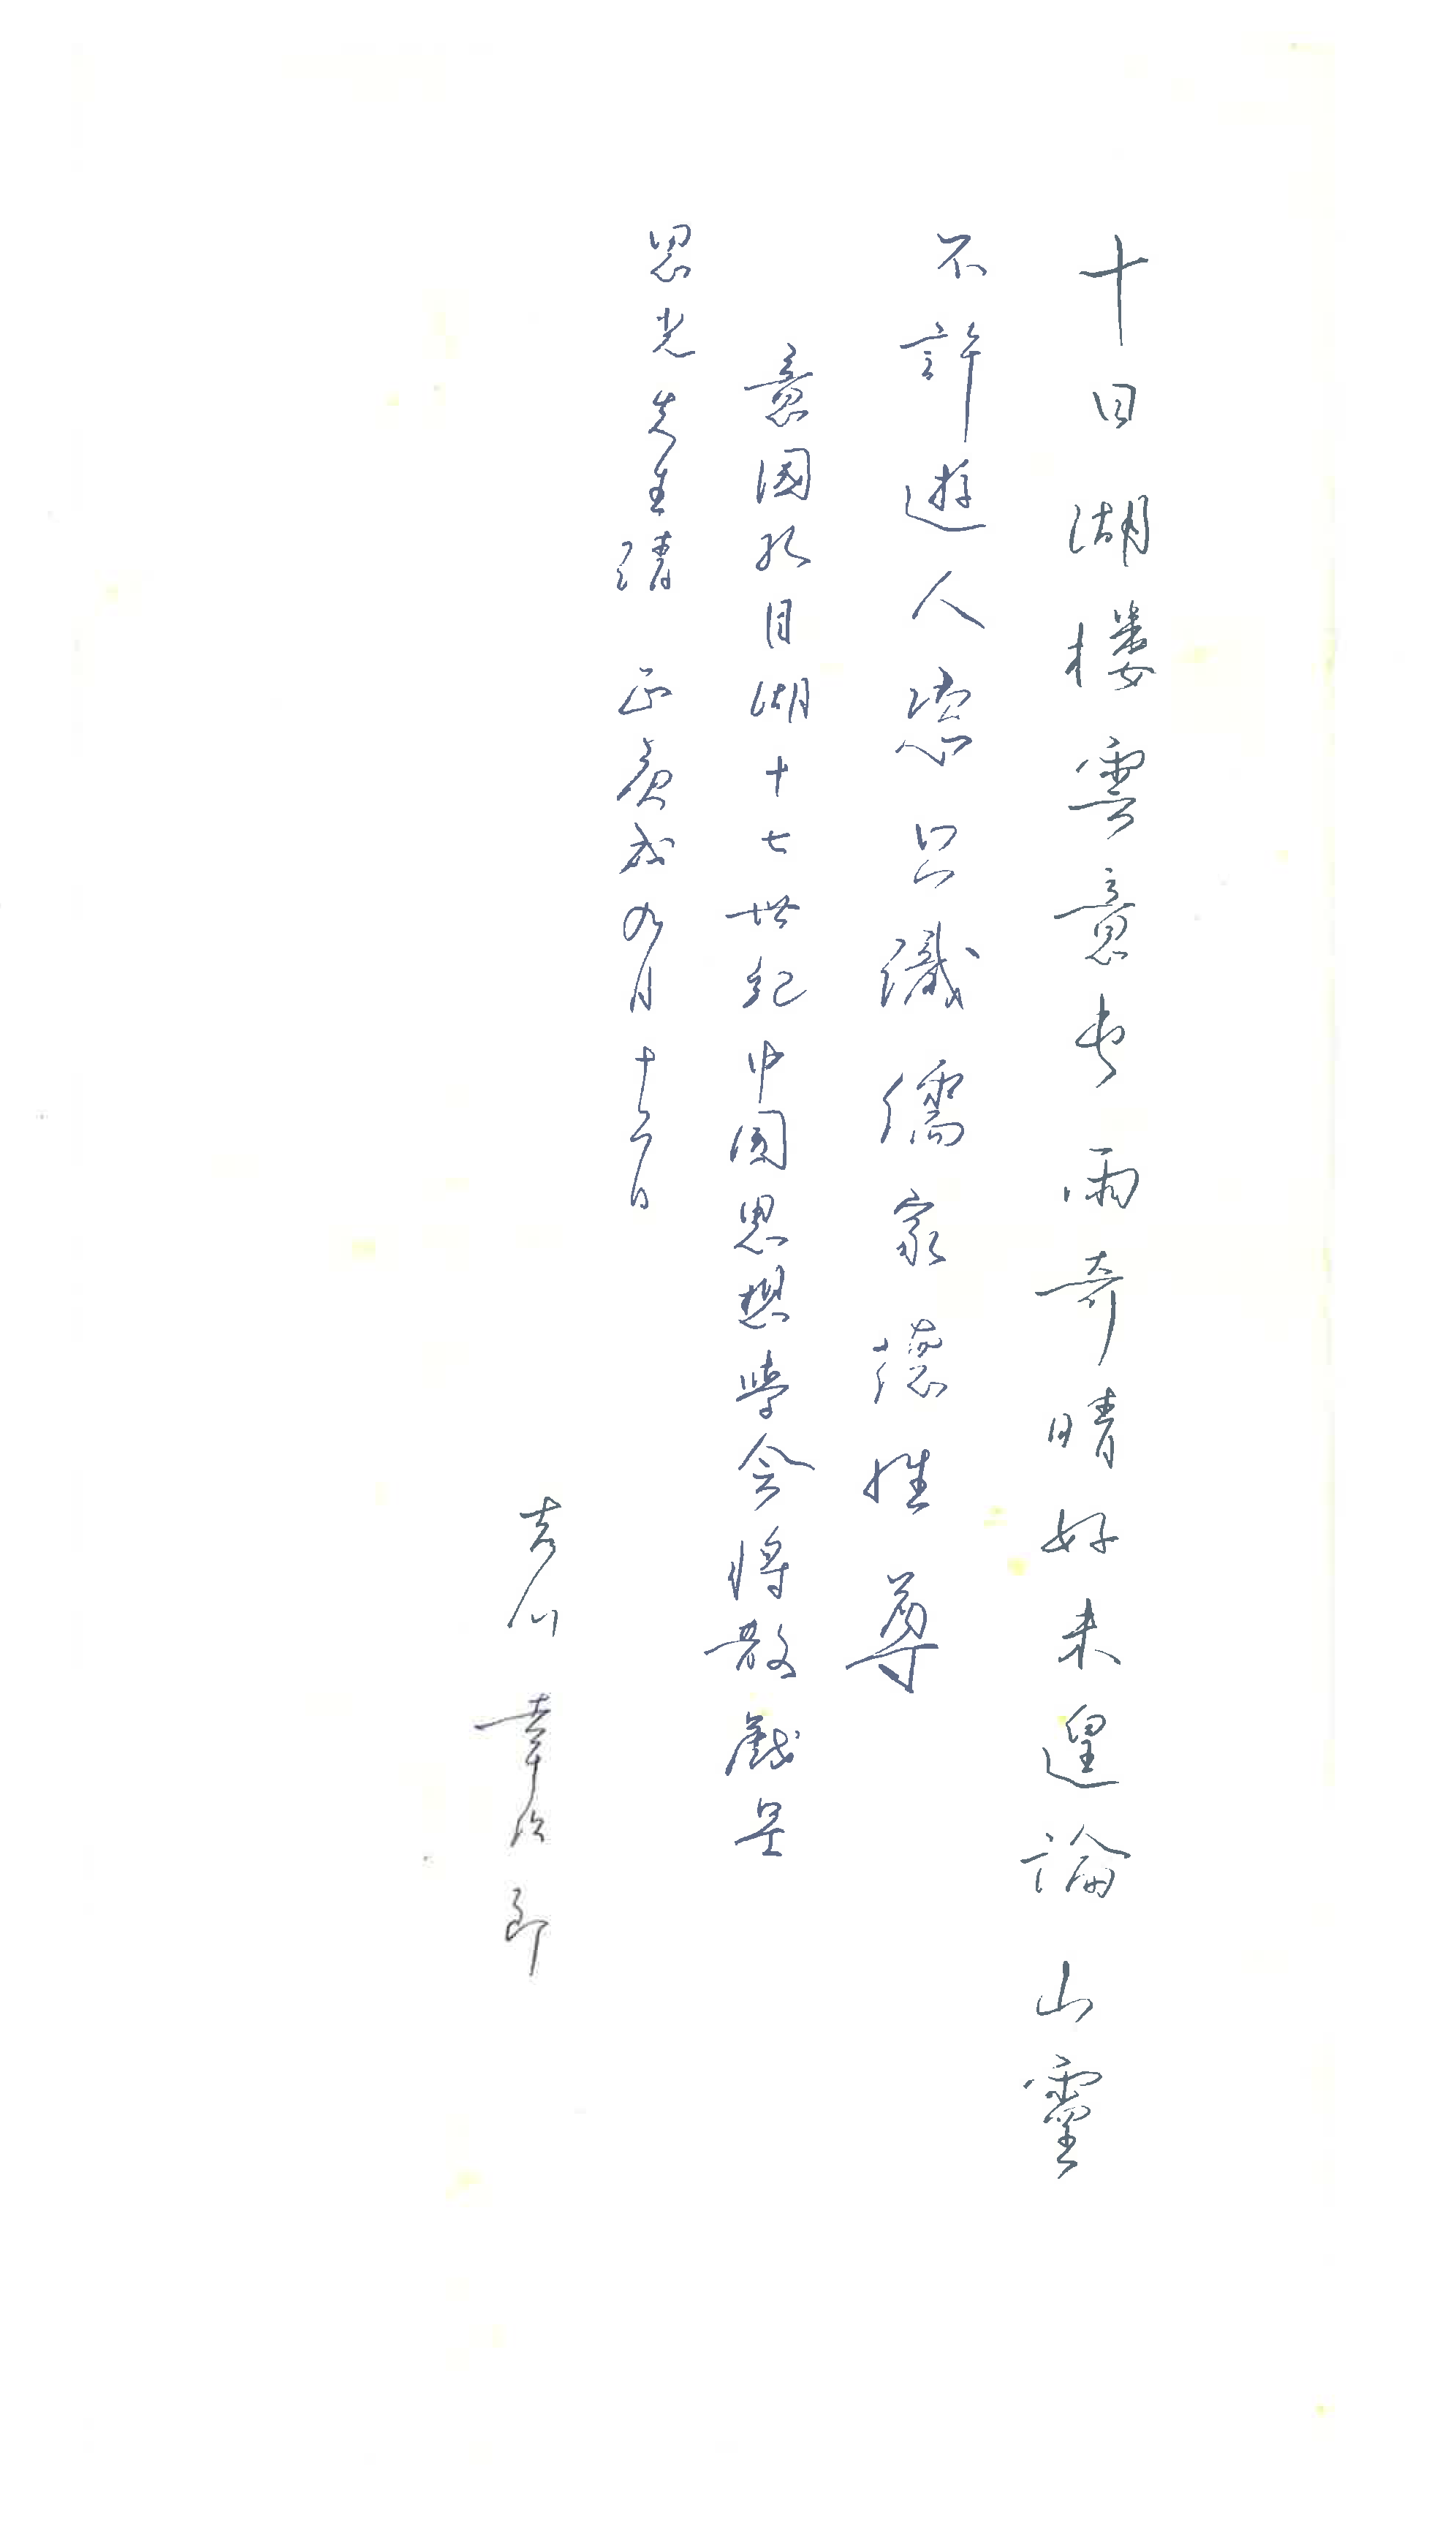 十日湖樓雲意屯雨奇晴好未遑論山靈
不許遊人恣只識儒家德性尊
意國科目湖十七世紀中國思想學会將散戲呈
思光先生請 正庚戌九月十六日
吉川幸次郎